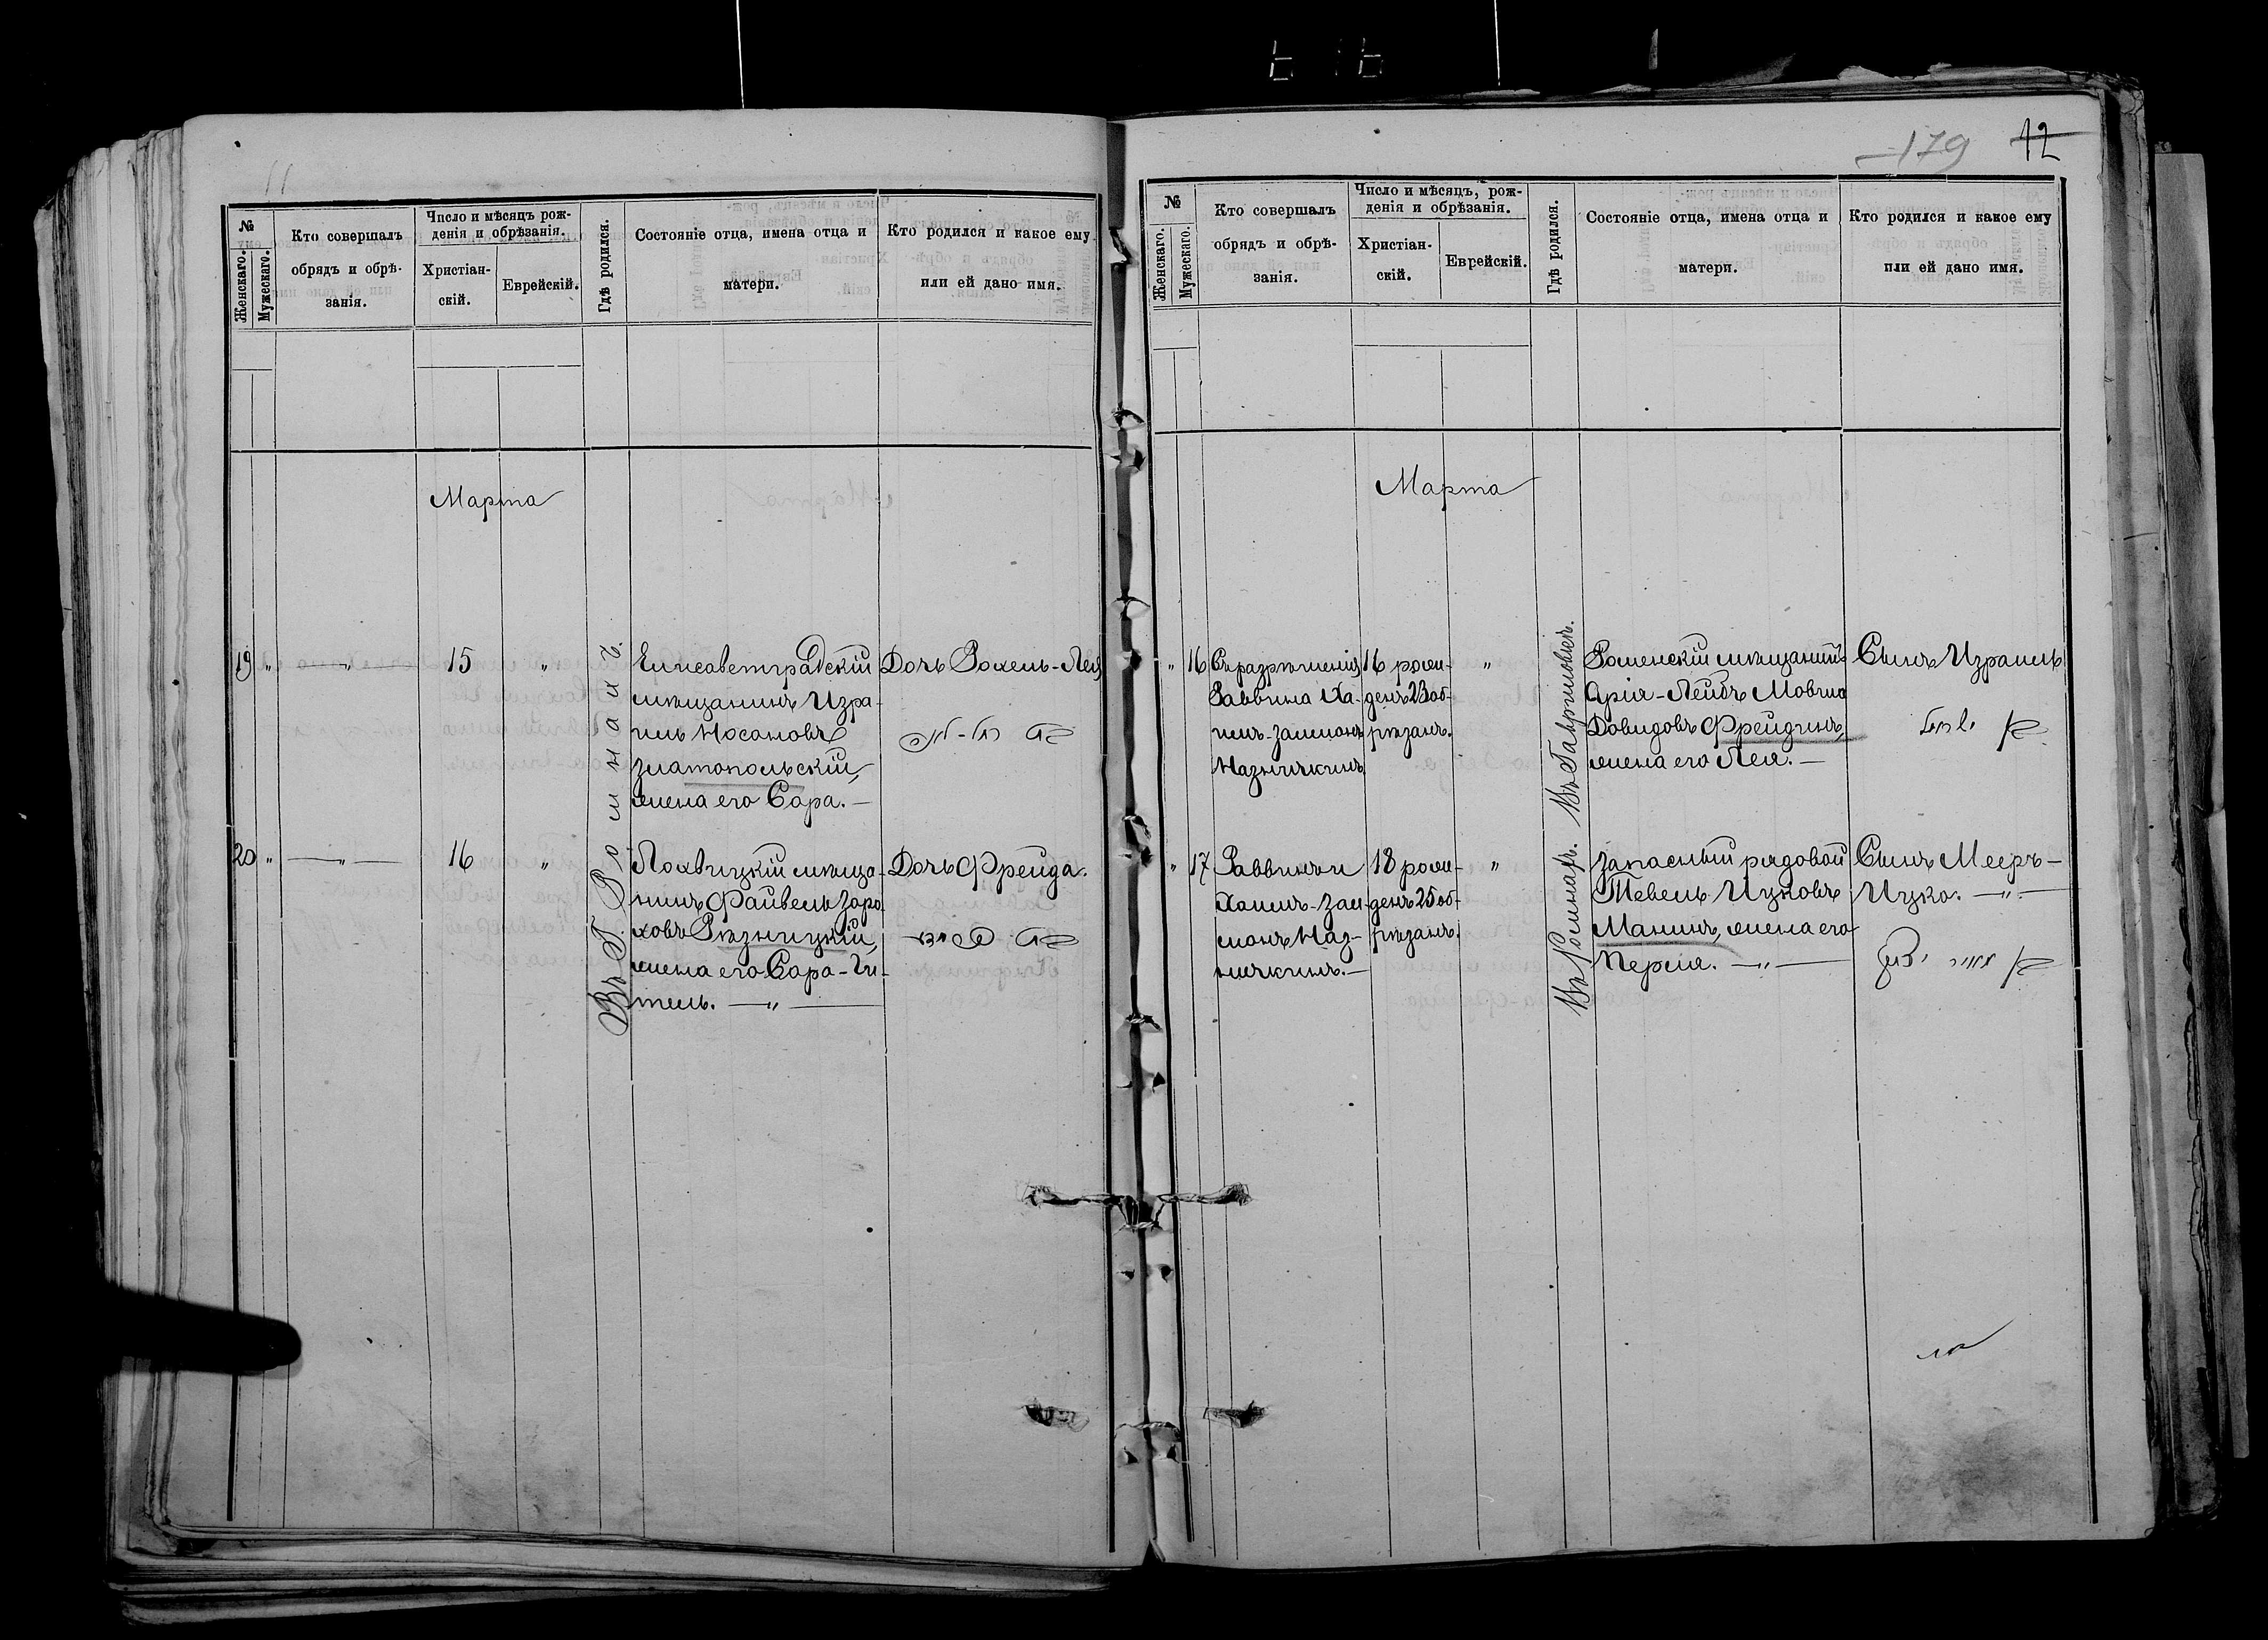 179 12
№
Женскаго.
Мужескаго.
Кто совершалъ
обрядъ и обрѣ-
занія.
Число и мѣсяцъ рож-
денія и обрѣзанія.
Христіан-
скій.
Еврейскій.
Гдѣ родился.
Состояніе отца, имена отца и
матери.
Кто родился и какое ему
или ей дано имя.
Марта
19 " —"— 15 "
Въ Г. Ромнахъ.
Елисаветградскій
мѣщанинъ Изра-
иль Носановъ
Златопольскій,
жена его Сара.—
Дочь Рохель-Лея
20 " —"— 16 "
Лохвицкій мѣща-
нинъ Файвель Заро-
ховъ Рѣзницкій,
жена его Сара-Ги-
тель. —"—
Дочь Фрейда.
№
Женскаго.
Мужескаго.
Кто совершалъ
обрядъ и обрѣ-
занія.
Число и мѣсяцъ, рож-
денія и обрѣзанія.
Христіан-
скій.
Еврейскій.
Гдѣ родился.
Состояніе отца, имена отца и
матери.
Кто родился и какое ему
или ей дано имя.
Марта
" 16
Съ разрѣшенія
Раввина Ха-
имъ-Залманъ
16 рож-
денъ 23 об-
рѣзанъ.
"
Роменскій мѣщанинъ
Арія-Лейбъ Мовша
Довидовъ Фрейдинъ,
жена его Лея.—
Сынъ Израиль
" 17
Раввинъ и
Хаимъ-Зал-
манъ
18 рож-
денъ 25 об-
рѣзанъ.
"
Запасный рядовой
Тевель Ицковъ
Манинъ, жена его
Песля. —"—
Сынъ Мееръ-
Ицко. —"—